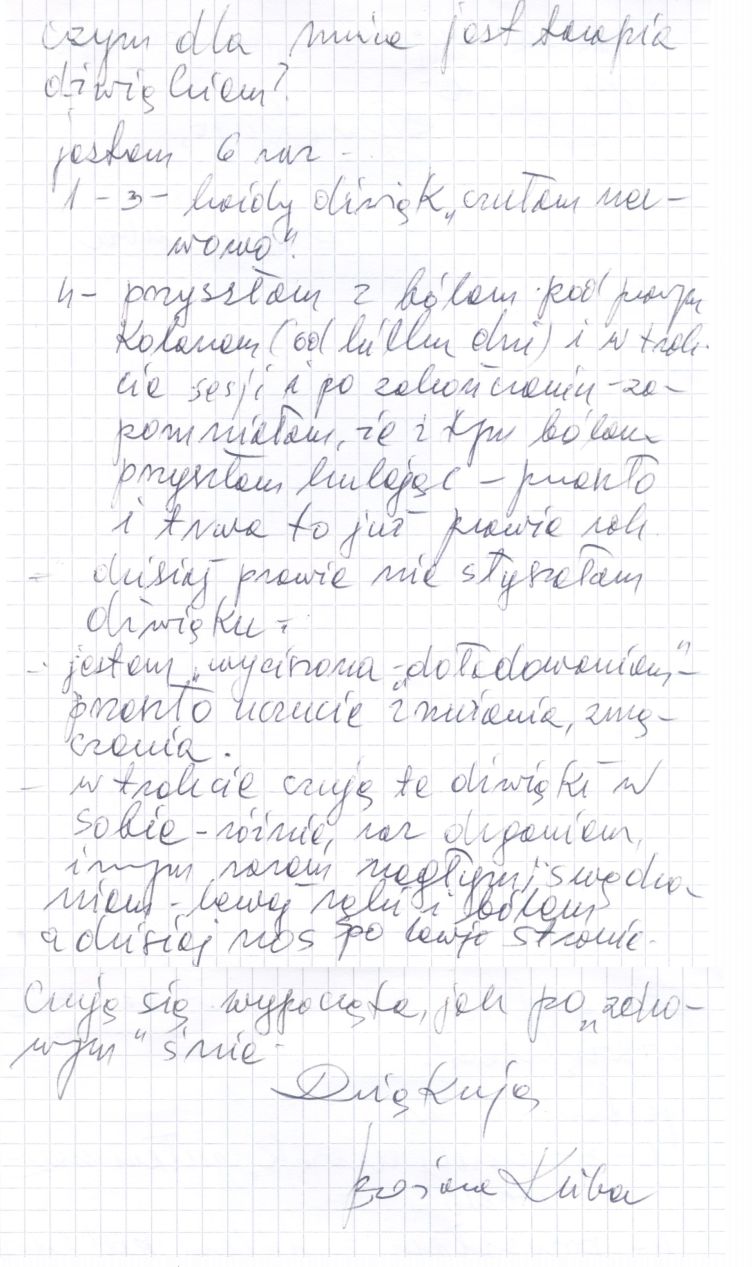 Czym dla mnie jest terapia
dźwiękiem?
jestem 6 raz -
1 - 3 - każdy dźwięk „czułam ner-
wowo".
4 - przyszłam z bólem pod prawym
kolanem (od kilku dni) i w trak-
cie sesji i po zakończeniu - za-
pomniałam, że z tym bólem
przyszłam kulejąc - przeszło
i trwa to już prawie rok.
- dzisiaj prawie nie słyszałam
dźwięku -
- jestem „wyciszona - doładowaniem" -
przeszło uczucie znużenia, zmę-
czenia.
- w trakcie czuję te dźwięki w
sobie - różnie, raz drganiem,
innym razem nagłym swędze-
niem - lewej ręki i bólem
a dzisiaj nos po lewej stronie.
Czuję się wypoczęta, jak po „zdro-
wym" śnie.
Dziękuję
Kuba